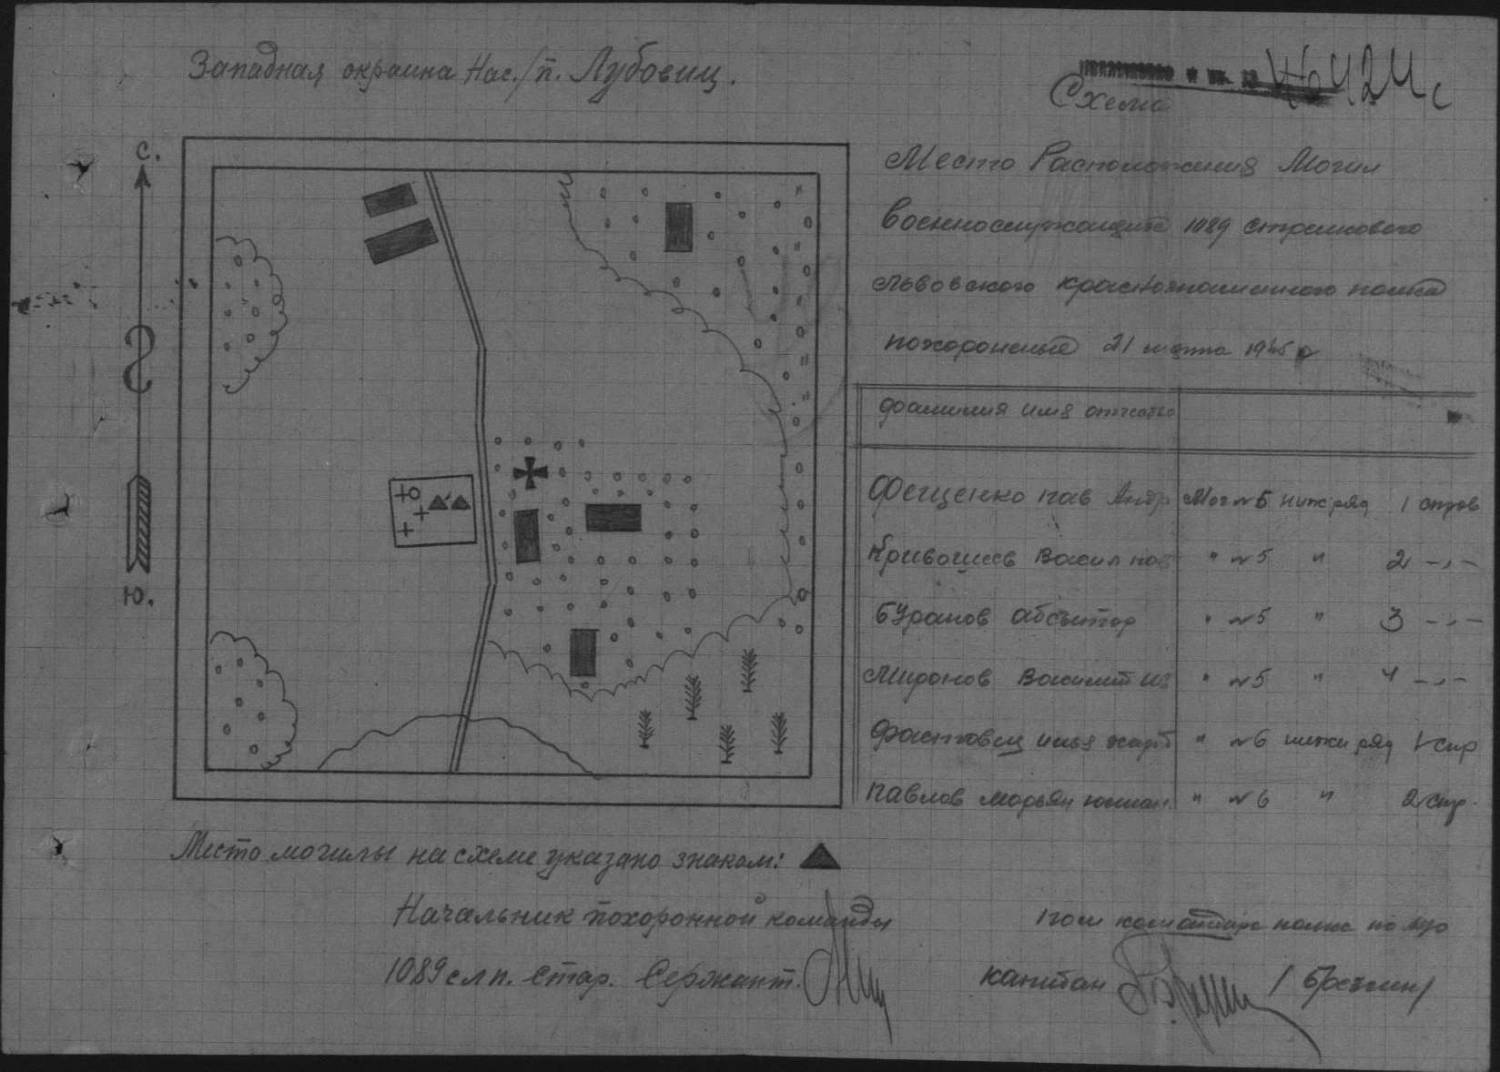 Западная окраина Нас./п. Лубовиц.
46424с
Схема
Место Расположения Могил
Военнослужащих 1089 стрелкового
Львовского краснознаменного полка
похороненые 21 марта 1945 г
С.
Ю.
фамилия имя отчество
Фещенко пав Андр Мог №5 ниж ряд 1 справ
Кривошеев Васил " №5 " 2 -„-
Буранов " №5 " 3 -„-
Миронов " №5 " 4 -„-
Фастовец илья " №6 ряд 1 спр
Павлов Марьян " №6 " 2 спр.
Место могилы на схеме указано знаком:
Начальник похоронной команды
1089 с.п. Стар. Сержант.
пом командира полка по
капитан